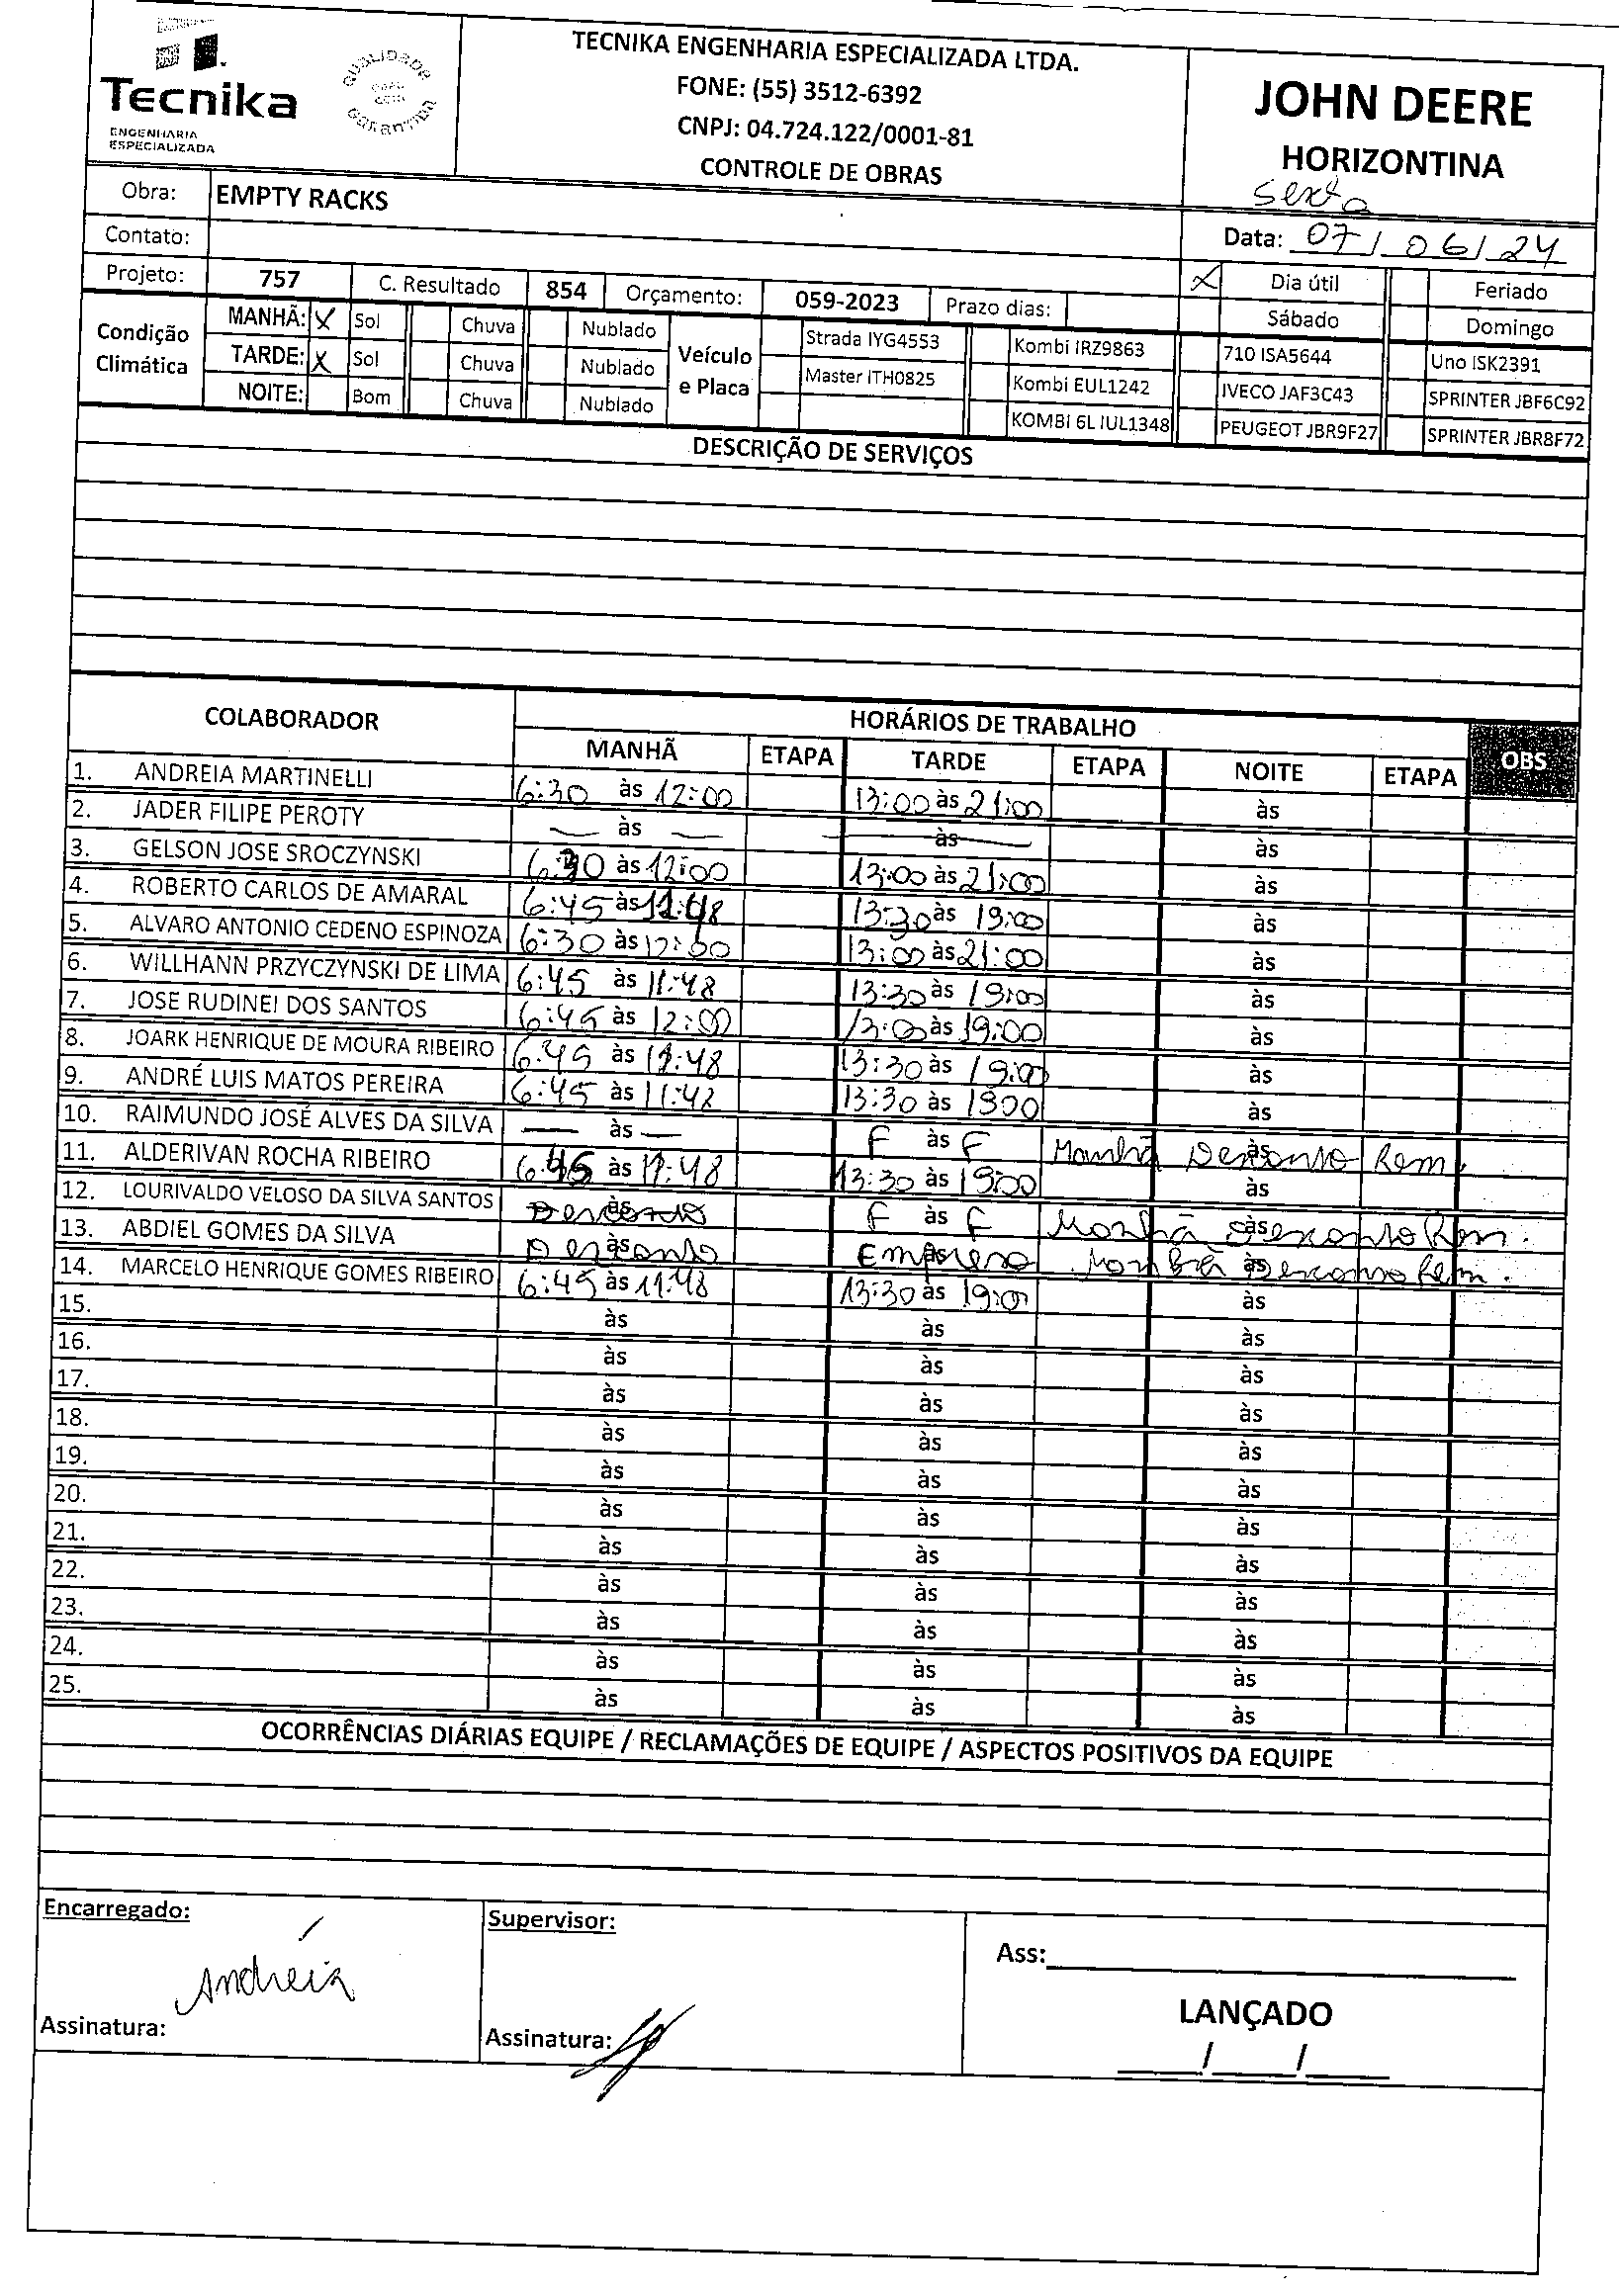 Tecnika
ENGENHARIA
ESPECIALIZADA
QUALIDADE
GARANTIDA
TECNIKA ENGENHARIA ESPECIALIZADA LTDA.
FONE: (55) 3512-6392
CNPJ: 04.724.122/0001-81
CONTROLE DE OBRAS
JOHN DEERE
HORIZONTINA
Sexta
Obra: EMPTY RACKS
Contato:
Data: 07/06/24
Projeto: 757 C. Resultado 854 Orçamento: 059-2023 Prazo dias:
X Dia útil Feriado
Sábado Domingo
Condição Climática
MANHÃ: X Sol Chuva Nublado
TARDE: X Sol Chuva Nublado
NOITE: Bom Chuva Nublado
Veículo e Placa
Strada IYG4553 Kombi IRZ9863 710 ISA5644 Uno ISK2391
Master ITH0825 Kombi EUL1242 IVECO JAF3C43 SPRINTER JBF6C92
KOMBI 6L IUL1348 PEUGEOT JBR9F27 SPRINTER JBR8F72
DESCRIÇÃO DE SERVIÇOS
COLABORADOR HORÁRIOS DE TRABALHO OBS
MANHÃ ETAPA TARDE ETAPA NOITE ETAPA
1. ANDREIA MARTINELLI 6:30 às 12:00 13:00 às 21:00 às
2. JADER FILIPE PEROTY — às — — às — às
3. GELSON JOSE SROCZYNSKI 6:30 às 12:00 13:00 às 21:00 às
4. ROBERTO CARLOS DE AMARAL 6:45 às 11:48 13:30 às 19:00 às
5. ALVARO ANTONIO CEDENO ESPINOZA 6:30 às 12:00 13:00 às 21:00 às
6. WILLHANN PRZYCZYNSKI DE LIMA 6:45 às 11:48 13:30 às 19:00 às
7. JOSE RUDINEI DOS SANTOS 6:45 às 12:00 13:00 às 19:00 às
8. JOARK HENRIQUE DE MOURA RIBEIRO 6:45 às 11:48 13:30 às 19:00 às
9. ANDRÉ LUIS MATOS PEREIRA 6:45 às 11:48 13:30 às 1900 às
10. RAIMUNDO JOSÉ ALVES DA SILVA — às — F às F Manhã Desconto às Rem.
11. ALDERIVAN ROCHA RIBEIRO 6:45 às 11:48 13:30 às 19:00 às
12. LOURIVALDO VELOSO DA SILVA SANTOS Desconto às F às F Manhã às Desconto Rem.
13. ABDIEL GOMES DA SILVA Desconto às Empresa às Manhã às Desconto Rem.
14. MARCELO HENRIQUE GOMES RIBEIRO 6:45 às 11:48 13:30 às 19:00 às
15. às às às
16. às às às
17. às às às
18. às às às
19. às às às
20. às às às
21. às às às
22. às às às
23. às às às
24. às às às
25. às às às
OCORRÊNCIAS DIÁRIAS EQUIPE / RECLAMAÇÕES DE EQUIPE / ASPECTOS POSITIVOS DA EQUIPE
Encarregado:
Andréia
Assinatura:
Supervisor:
Assinatura:
Ass:
LANÇADO
/ /